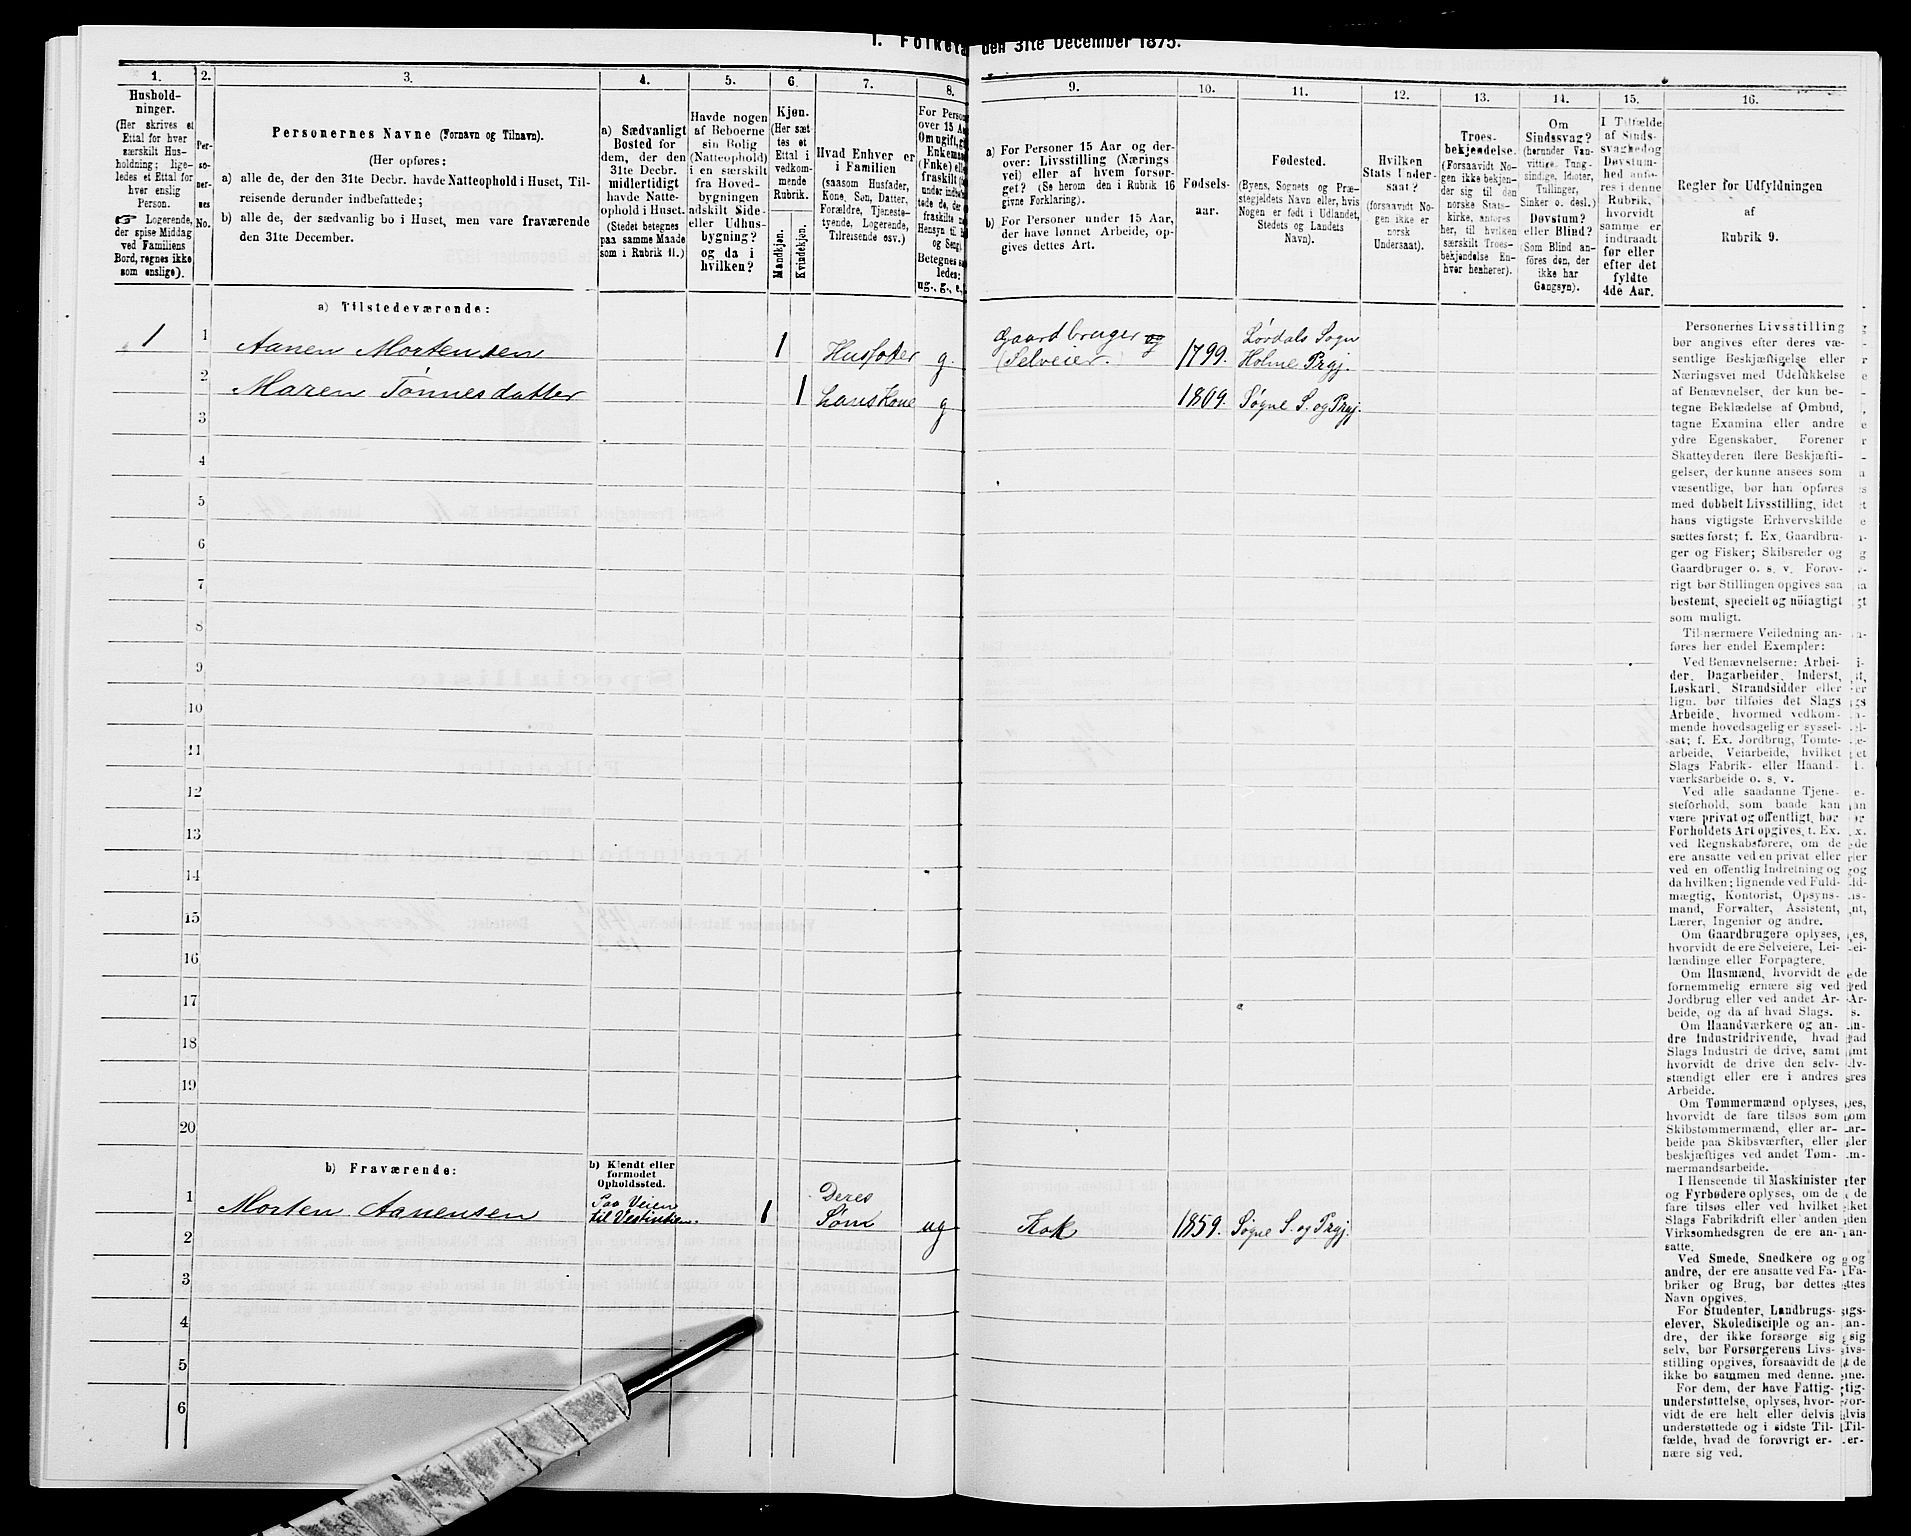 1. Folketæ den 31te December 1875.
1.
2.
3.
4.
5.
6.
7.
8.
9.
10.
11.
12.
13.
14.
15.
16.
Hushold-
ninger.
(Her skrives et
Ettal for hver
særskilt Hus-
holdning; lige-
ledes et Ettal for
hver enslig
Person.
☞ Logerende,
der spise Middag
ved Familiens
Bord, regnes ikke
som enslige).
Per-
so-
ner-
nes
No.
Personernes Navne (Fornavn og Tilnavn).
(Her opføres:
a) alle de, der den 31te Decbr. havde Natteophold i Huset, Til-
reisende derunder indbefattede;
b) alle de, der sædvanlig bo i Huset, men vare fraværende
den 31te December.
a) Sædvanligt
Bosted for
dem, der den
31te Decbr.
midlertidigt
havde Natte-
ophold i Huset.
(Stedet betegnes
paa samme Maade
som i Rubrik 11.)
Havde nogen
af Beboerne
sin Bolig
(Natteophold)
i en særskilt
fra Hoved-
bygningen
adskilt Side-
eller Udhus-
bygning?
og da i
hvilken?
Kjøn.
(Her sæt
tes et
Ettal i
vedkom-
mende
Rubrik.
Mandkjøn.
Kvindekjøn.
Hvad Enhver er
i Familien
(saasom Husfader,
Kone, Søn, Datter,
Forældre, Tjeneste-
tyende, Logerende,
Tilreisende osv.)
For Person
over 15 Aa
Om ugift, g
Enkema
(Enke) ell
fraskilt (
under indb
tede de, de
fraskilte
Hensyn til
og Seng).
Betegnes s
ledes:
ug., g., e.,
a) For Personer 15 Aar og der-
over: Livsstilling (Nærings
vei) eller af hvem forsør-
get? (Se herom den i Rubrik 16
givne Forklaring).
b) For Personer under 15 Aar,
der have lønnet Arbeide, op-
gives dettes Art.
Fødsels-
aar.
Fødested.
(Byens, Sognets og Præ-
stegjeldets Navn eller, hvis
Nogen er født i Udlandet,
Stedets og Landets
Navn).
Hvilken
Stats Under-
saat?
(forsaavidt No-
gen ikke er
norsk
Undersaat).
Troes-
bekjendelse.
(Forsaavidt No-
gen ikke bekjen-
der sig til den
norske Stats-
kirke, anføres
her, til hvilken
særskilt Troes-
bekjendelse En-
hver henhører).
Om
Sindssvag?
(herunder Van-
vittige, Tung-
sindige, Idioter,
Tullinger,
Sinker o. desl.)
Døvstum?
eller Blind?
(Som Blind an-
føres den, der
ikke har
Gangsyn).
I Tilfælde
af Sinds-
svaghed og
Døvstum-
hed anfø-
res i denne
Rubrik,
hvorvidt
samme er
indtraadt
før eller
efter det
fyldte
4de Aar.
Regler for Udfyldningen
af
Rubrik 9.
a) Tilstedeværende:
1 1 Aanen Mortensen 1 Husfader g. Gaardbruger og (Selveier.) 1799. Lovdals Sogn Holme Prgj.
2 Maren Tønnesdatter 1 hans Kone g 1809. Søgne S. og Prgj.
3
4
5
6
7
8
9
10
11
12
13
14
15
16
17
18
19
20
b) Fraværende:
b) Kjendt eller
formodet
Opholdssted.
1 Morten Aanensen Paa Veien til Vestindien. 1 Deres Søn ug Kok 1859. Søgne S. og Prgj.
2
3
4
5
6
Personernes Livsstilling
bør angives efter deres væ-
sentlige Beskjæftigelse eller
Næringsvei med Udelukkelse
af Benævnelser, der kun be-
tegne Beklædelse af Ombud,
tagne Examina eller andre
ydre Egenskaber. Forener
Skatteyderen flere Beskjæfti-
gelser, der kunne ansees som
væsentlige, bør han opføres
med dobbelt Livsstilling, idet
hans vigtigste Erhvervskilde
sættes først; f. Ex. Gaardbru-
ger og Fisker; Skibsreder og
Gaardbruger o. s. v. Forøv-
rigt bør Stillingen opgives saa
bestemt, specielt og nöiagtigt
som muligt.
Til nærmere Veiledning an-
føres her endel Exempler:
Ved Benævnelserne: Arbei-
der, Dagarbeider, Inderst,
Løskarl, Strandsidder eller
lign. bør tilføies det Slags
Arbeide, hvormed vedkom-
mende hovedsagelig er syssel-
sat; f. Ex. Jordbrug, Tomte-
arbeide, Veiarbeide, hvilket
Slags Fabrik- eller Haand-
værksarbeide o. s. v.
Ved alle saadanne Tjene-
steforhold, som baade kan
være privat og offentligt, bør
Forholdets Art opgives, t. Ex.
ved Regnskabsførere, om de
ere ansatte ved en privat eller
ved en offentlig Indretning og
da hvilken; lignende ved Fuld-
mægtig, Kontorist, Opsyns-
mand, Forvalter, Assistent,
Lærer, Ingeniør og andre.
Om Gaardbrugere oplyses,
hvorvidt de ere Selveiere, Lei-
lændinge eller Forpagtere.
Om Husmænd, hvorvidt de
fornemmelig ernære sig ved
Jordbrug eller ved andet Ar-
beide, og da af hvad Slags.
Om Haandværkere og an-
dre Industridrivende, hvad
Slags Industri de drive, samt
hvorvidt de drive den selv-
stændigt eller ere i andres
Arbeide.
Om Tømmermænd oplyses,
hvorvidt de fare tilsøs som
Skibstømmermænd, eller ar-
beide paa Skibsværfter, eller
beskjæftiges ved andet Tøm-
mermandsarbeide.
I Henseende til Maskinister
og Fyrbødere oplyses, om de
fare tilsøs eller ved hvilket
Slags Fabrikdrift eller anden
Virksomhedsgren de ere an-
satte.
Ved Smede, Snedkere og
andre, der ere ansatte ved Fa-
briker og Brug, bør dettes
Navn opgives.
For Studenter, Landbrugs-
elever, Skoledisciple og an-
dre, der ikke forsørge sig
selv, bør Forsørgerens Livs-
stilling opgives, forsaavidt de
ikke bo sammen med denne.
For dem, der have Fattig-
understøttelse, oplyses, hvor-
vidt de ere helt eller delvis
understøttede og i sidste Til-
fælde, hvad de forøvrigt er-
nære sig ved.